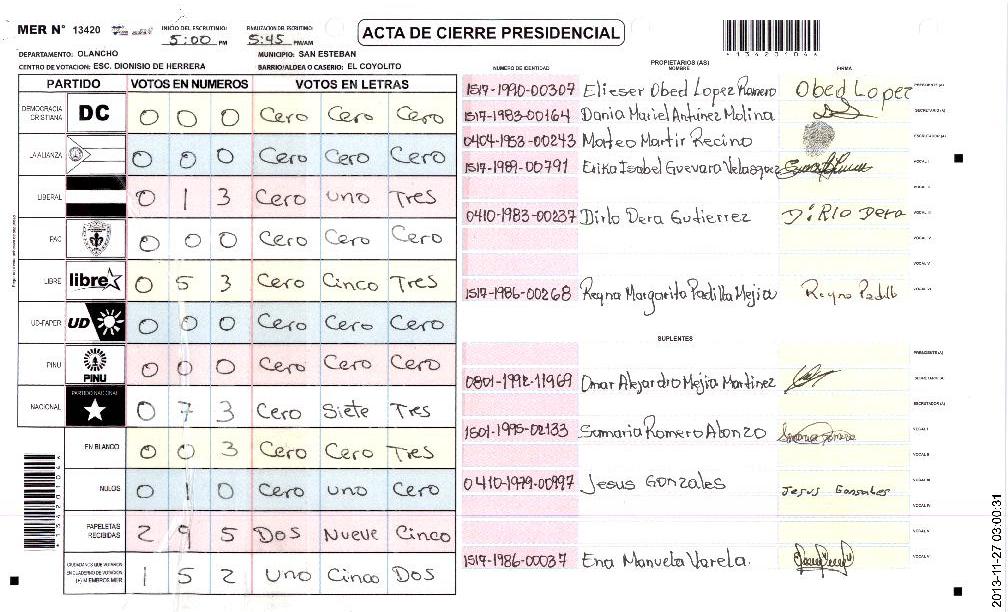 MER N° 13420
INICIO DEL ESCRUTINIO: 5:00 PM
FINALIZACION DE ESCRUTINIO: 5:45 PM/AM
ACTA DE CIERRE PRESIDENCIAL
DEPARTAMENTO: OLANCHO
MUNICIPIO: SAN ESTEBAN
CENTRO DE VOTACION: ESC. DIONISIO DE HERRERA
BARRIO/ALDEA O CASERIO: EL COYOLITO
PARTIDO VOTOS EN NUMEROS VOTOS EN LETRAS
DEMOCRACIA CRISTIANA DC 0 0 0 Cero Cero Cero
LA ALIANZA 0 0 0 Cero Cero Cero
LIBERAL 0 1 3 Cero uno Tres
PAC 0 0 0 Cero Cero Cero
LIBRE libre 0 5 3 Cero Cinco Tres
UD-FAPER UD 0 0 0 Cero Cero Cero
PINU PINU 0 0 0 Cero Cero Cero
NACIONAL PARTIDO NACIONAL 0 7 3 Cero Siete Tres
EN BLANCO 0 0 3 Cero Cero Tres
NULOS 0 1 0 Cero uno Cero
PAPELETAS RECIBIDAS 2 9 5 Dos Nueve Cinco
CIUDADANOS QUE VOTARON EN CUADERNO DE VOTACION (+) MIEMBROS MER 1 5 2 uno Cinco Dos
PROPIETARIOS (AS)
NUMERO DE IDENTIDAD NOMBRE FIRMA
1517-1990-00307 Elieser Obed Lopez Romero Obed Lopez PRESIDENTE (A)
1517-1983-00164 Dania Mariel Antunez Molina SECRETARIO (A)
0404-1953-00243 Mateo Martir Recino ESCRUTADOR (A)
1517-1989-00791 Erika Isabel Guevara Velasquez VOCAL I
VOCAL II
0410-1983-00237 Dirlo Dera Gutierrez DiRlo Dera VOCAL III
VOCAL IV
VOCAL V
1517-1986-00268 Reyna Margarita Padilla Mejia Reyna Padilla VOCAL VI
SUPLENTES
PRESIDENTE (A)
0801-1992-11969 Omar Alejandro Mejia Martinez SECRETARIO (A)
ESCRUTADOR (A)
1501-1995-02133 Samaria Romero Alonzo VOCAL I
VOCAL II
0410-1979-00997 Jesus Gonzales Jesus Gonzales VOCAL III
VOCAL IV
VOCAL V
1517-1986-00037 Ena Manuela Varela. VOCAL VI
*134201046*
2013-11-27 03:00:31